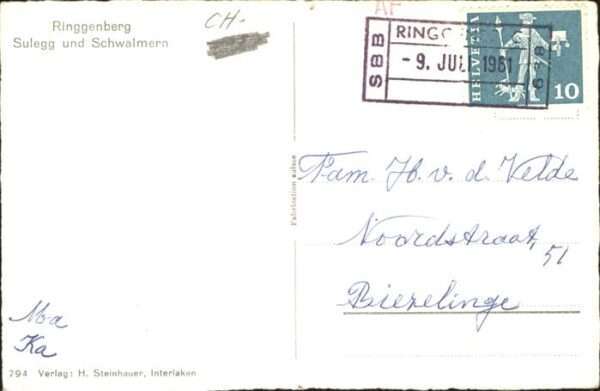 Ringgenberg
Sulegg und Schwalmern
CH-
AF
SBB
RINGG
- 9. JUL. 1961
SBB
HELVETIA
10
Fabrication suisse
Fam. H. v. d. Velde
Noordstraat, 51
Biezelinge
Moa
Ka
794 Verlag: H. Steinhauer, Interlaken